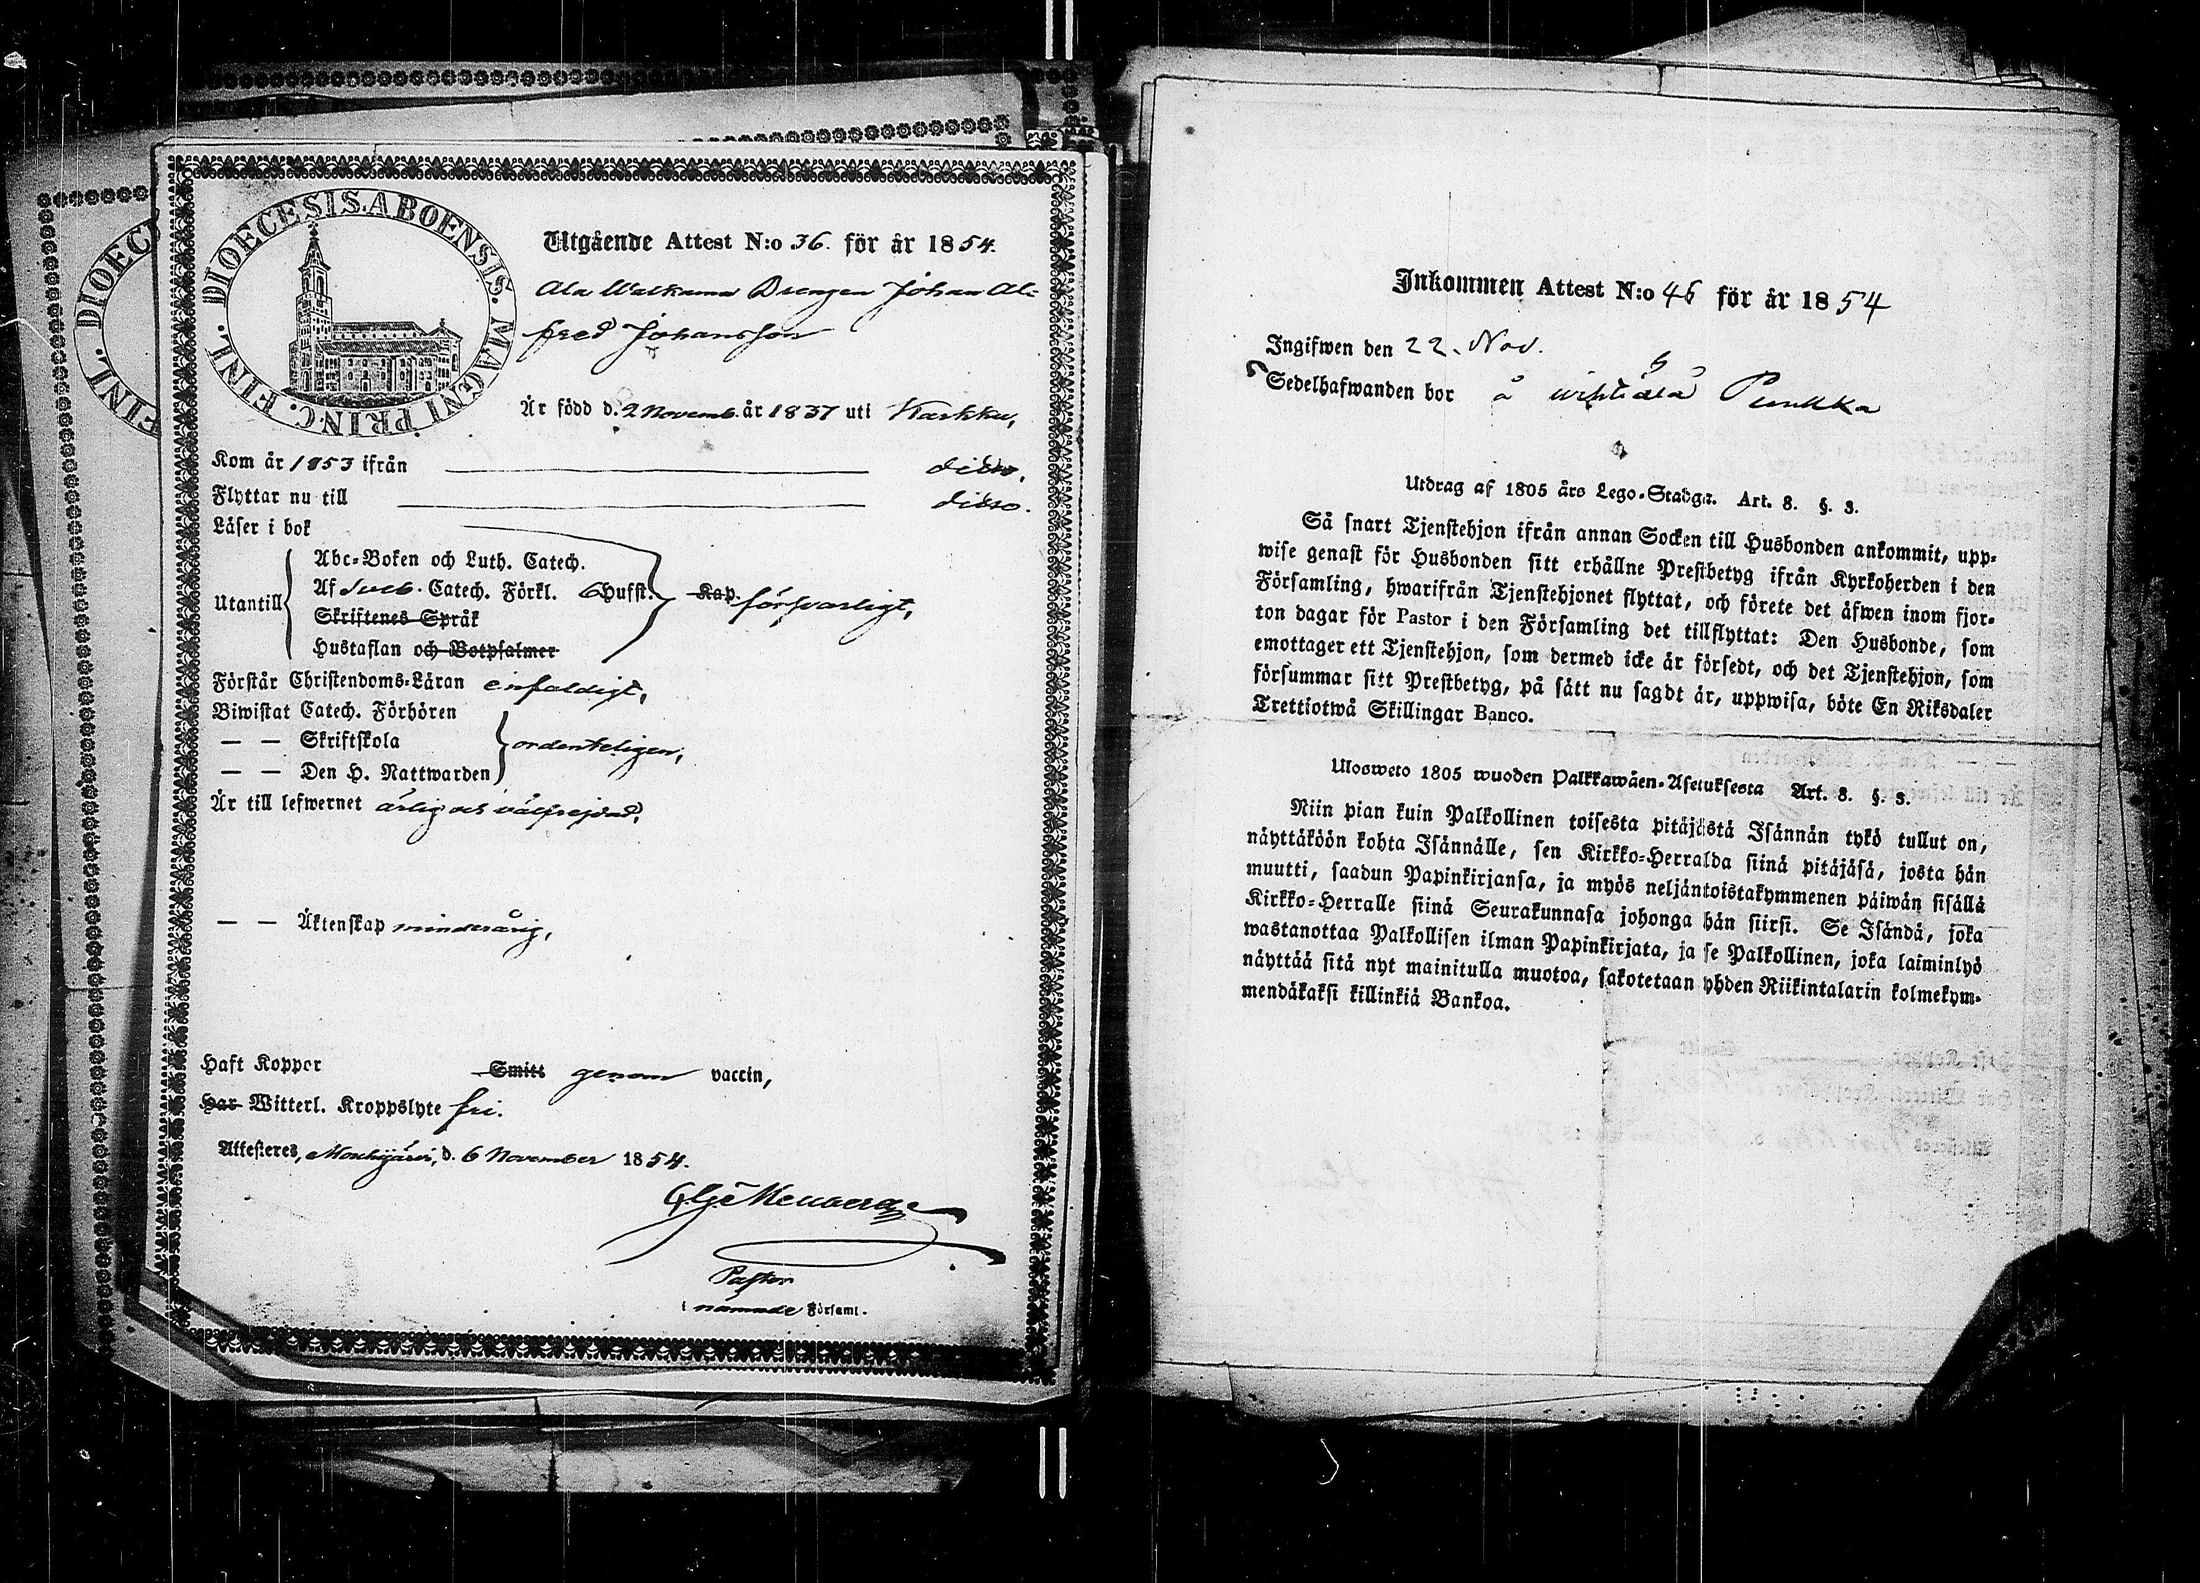 DIOECESIS. ABOENSIS. MAGNI PRINC. FINL.
Utgående Attest N:o 36. för år 1854.
Ala Walkama Drengen Johan Al-
fred Johansson
Är född d. 2 Novemb. år 1837 uti Karkku,
Kom år 1853 ifrån ditto,
Flyttar nu till ditto.
Läser i bok
Utantill
Abc-Boken och Luth. Catech.
Af Sveb. Catech. Förkl. 6 Hufst. Kap. försvarligt,
Skriftenes Språk
Hustaflan och Botpsalmer
Förstår Christendoms-Läran enfaldigt,
Biwistat Catech. Förhören
— — Skriftskola ordenteligen,
— — Den H. Nattwarden
Är till lefwernet ärlig och välfrejdad,
— — Äktenskap minderårig,
Haft Koppor Smitt genom vaccin,
Har Witterl. Kroppslyte fri.
Attesteres, Mouhijärvi, d. 6 November 1854.
Pastor
i nämnde Församl.
DIOECE
FINL.
Inkommen Attest N:o 46 för år 1854
Ingifwen den 22. Nov.
Sedelhafwanden bor å Punkka
Utdrag af 1805 års Lego-Stadga. Art. 8. §. 3.
Så snart Tjenstehjon ifrån annan Socken till Husbonden ankommit, upp-
wise genast för Husbonden sitt erhållne Prestbetyg ifrån Kyrkoherden i den
Församling, hwarifrån Tjenstehjonet flyttat, och förete det äfwen inom fjor-
ton dagar för Pastor i den Församling det tillflyttat: Den Husbonde, som
emottager ett Tjenstehjon, som dermed icke är försedt, och det Tjenstehjon, som
försummar sitt Prestbetyg, på sätt nu sagdt är, uppwisa, böte En Riksdaler
Trettiotwå Skillingar Banco.
Ulosweto 1805 wuoden Palkkawäen-Asetuksesta Art. 8. §. 3.
Niin pian kuin Palkollinen toisesta pitäjästä Isännän tykö tullut on,
näyttäköön kohta Isännälle, sen Kirkko-Herralda siinä pitäjäsä, josta hän
muutti, saadun Papinkirjansa, ja myös neljäntoistakymmenen päiwän sisällä
Kirkko-Herralle siinä Seurakunnasa johonga hän siirsi. Se Isändä, joka
wastanottaa Palkollisen ilman Papinkirjata, ja se Palkollinen, joka laiminlyö
näyttää sitä nyt mainitulla muotoa, sakotetaan yhden Riikintalarin kolmekym-
mendäkaksi killinkiä Bankoa.